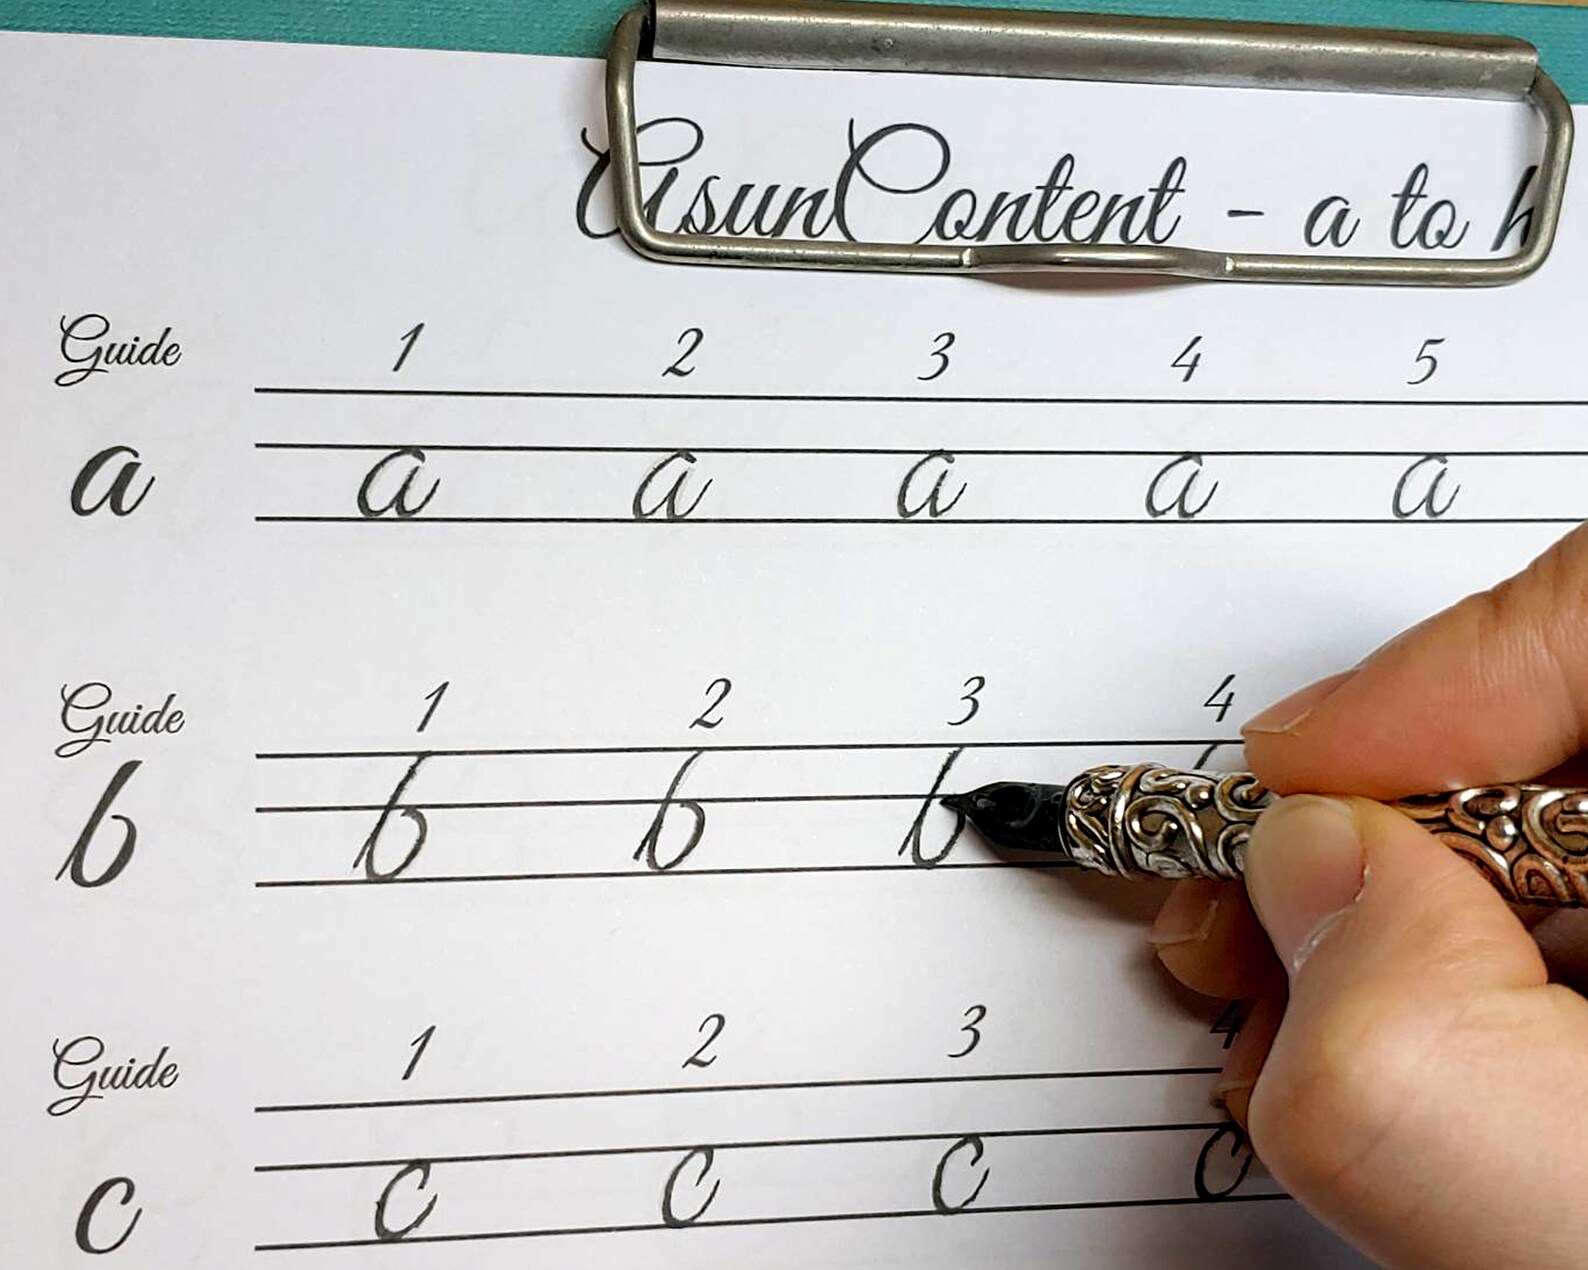 AsunContent - a to h
Guide 1 2 3 4 5
a a a a a a
Guide 1 2 3 4
b b b b
Guide 1 2 3 4
c c c c c